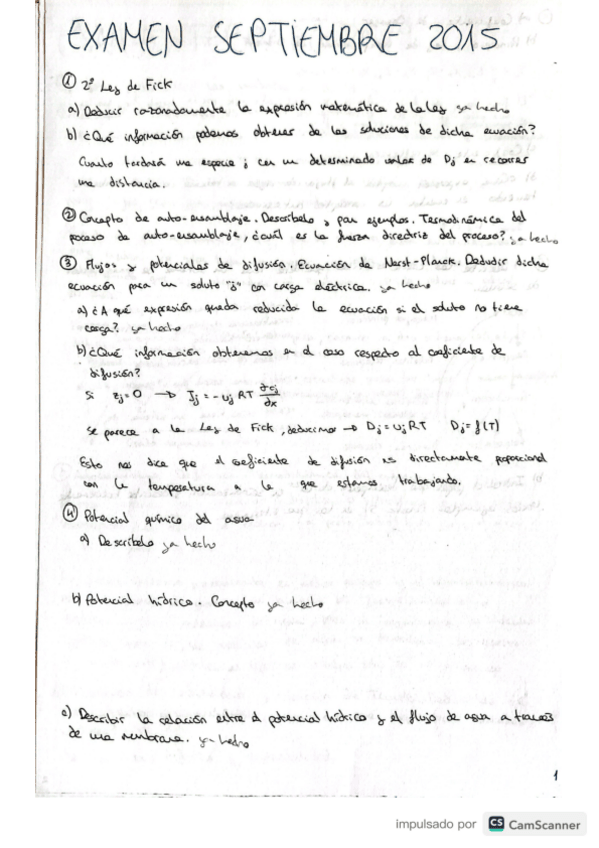 EXAMEN SEPTIEMBRE 2015
① 2ª Ley de Fick
a) Deducir razonadamente la expresión matemática de la ley ya hecho
b) ¿Qué información podemos obtener de las soluciones de dicha ecuación?
Cuanto tardará una especie j con un determinado valor de Dj en recorrer
una distancia.
② Concepto de auto-ensamblaje. Descríbelo y pon ejemplos. Termodinámica del
proceso de auto-ensamblaje, ¿cuál es la fuerza directriz del proceso? ya hecho
③ Flujos y potenciales de difusión. Ecuación de Nerst-Planck. Deducir dicha
ecuación para un soluto "j" con carga eléctrica. ya hecho
a) ¿A qué expresión queda reducida la ecuación si el soluto no tiene
carga? ya hecho
b) ¿Qué información obtenemos en el caso respecto al coeficiente de
difusión?
Si zj=0 → Jj = -uj RT ∂cj/∂x
Se parece a la Ley de Fick, deducimos → Dj = uj RT Dj = f(T)
Esto nos dice que el coeficiente de difusión es directamente proporcional
con la temperatura a la que estamos trabajando.
④ Potencial químico del agua
a) Descríbelo ya hecho
b) Potencial hídrico. Concepto ya hecho
c) Describir la relación entre el potencial hídrico y el flujo de agua a través
de una membrana. ya hecho
1
impulsado por CS CamScanner